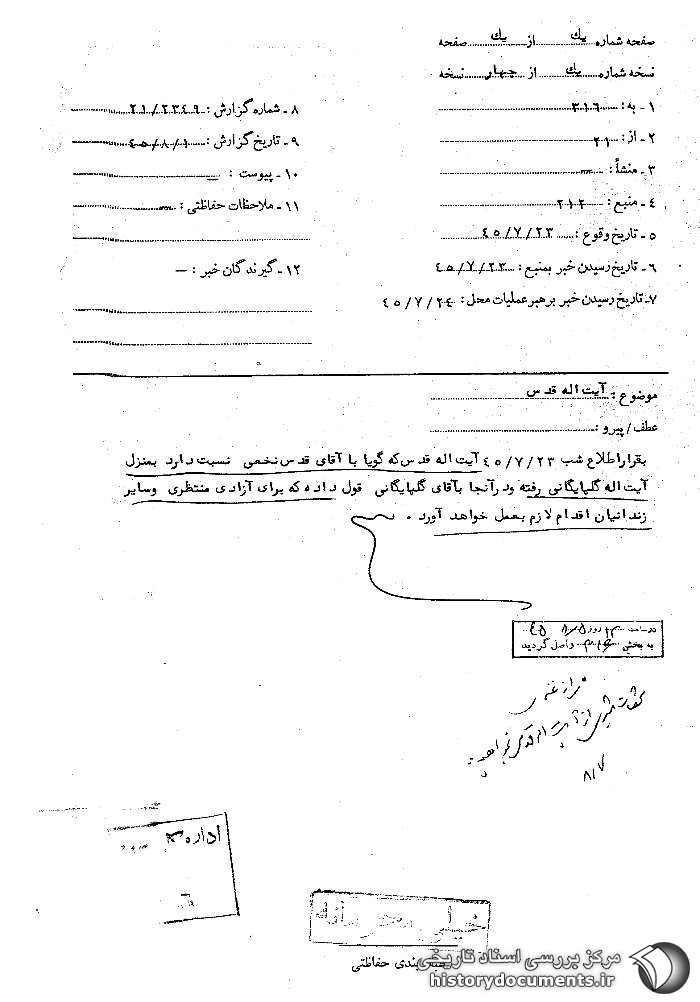 صفحه شماره یک از یک صفحه
نسخه شماره یک از چهار نسخه
۱ـ به: ۳۱۶
۲ـ از: ۲۱
۳ـ منشأ: ــ
۴ـ منبع: ۲۱۲
۵ـ تاریخ وقوع: ۴۵/۷/۲۳
۶ـ تاریخ رسیدن خبر بمنبع: ۴۵/۷/۲۳
۷ـ تاریخ رسیدن خبر برهبر عملیات محل: ۴۵/۷/۲۴
۸ـ شماره گزارش: ۲۱/۲۳۴۹
۹ـ تاریخ گزارش: ۴۵/۸/۱
۱۰ـ پیوست: ــ
۱۱ـ ملاحظات حفاظتی: ــ
۱۲ـ گیرندگان خبر: ــ
موضوع: آیت اله قدس
عطف/پیرو:
بقرار اطلاع شب ۴۵/۷/۲۳ آیت اله قدس که گویا با آقای قدس نخعی نسبت دارد بمنزل
آیت اله گلپایگانی رفته و در آنجا بآقای گلپایگانی قول داده که برای آزادی منتظری و سایر
زندانیان اقدام لازم بعمل خواهد آورد.
در ساعت روز ۸/۵ ۴۵
به بخش ۳۱۶ واصل گردید
از آیت اله قدس
۸/۷
اداره
خیلی محرمانه
طبقه بندی حفاظتی
مرکز بررسی اسناد تاریخی
historydocuments.ir